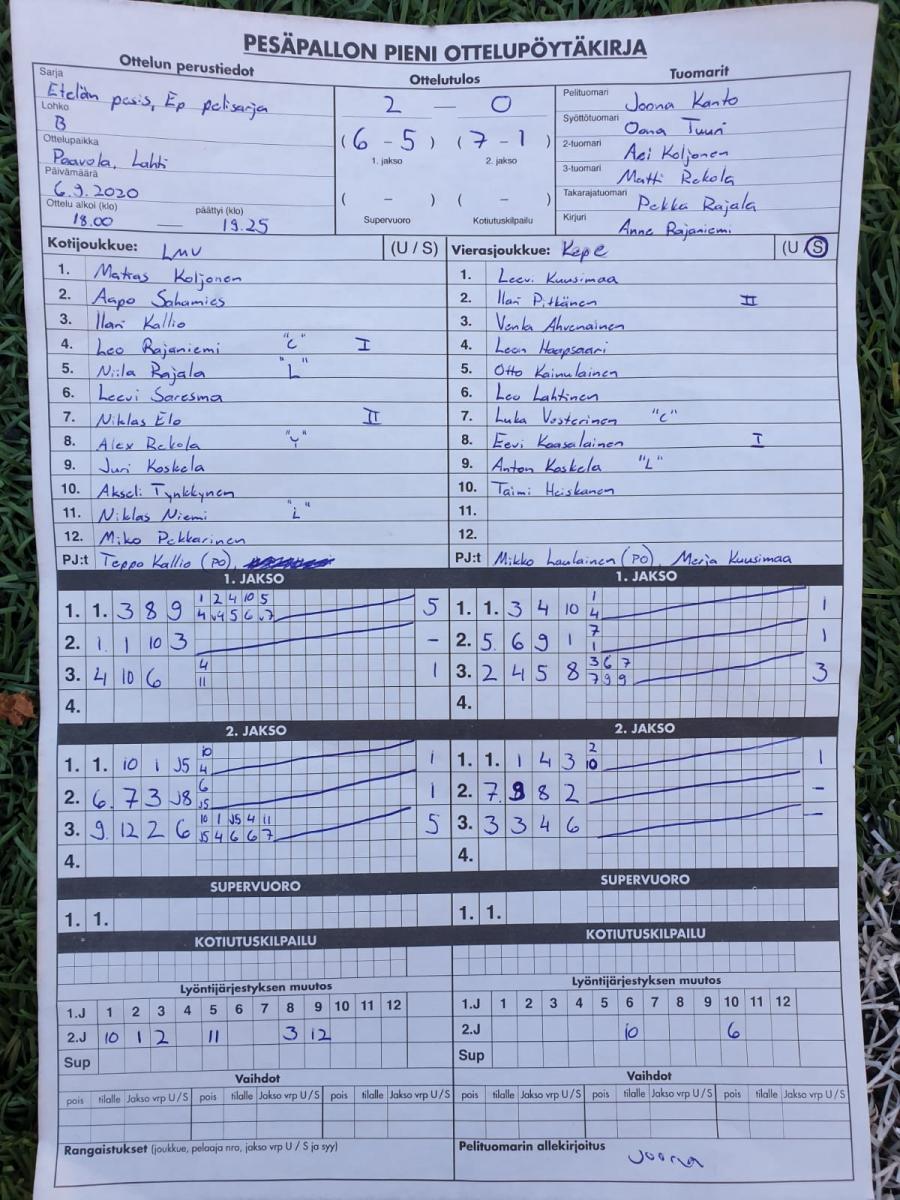 PESÄPALLON PIENI OTTELUPÖYTÄKIRJA
Ottelun perustiedot
Ottelutulos
Tuomarit
Sarja
Etelän pesis, Ep pelisarja
Lohko
B
Ottelupaikka
Paavola, Lahti
Päivämäärä
6.9.2020
Ottelu alkoi (klo) päättyi (klo)
18.00 — 19.25
2 — 0
(6 - 5) (7 - 1)
1. jakso 2. jakso
( - ) ( - )
Supervuoro Kotiutuskilpailu
Pelituomari Joona Kanto
Syöttötuomari Oona Tuuri
2-tuomari Ari Koljonen
3-tuomari Matti Rekola
Takarajatuomari Pekka Rajala
Kirjuri Anne Rajaniemi
Kotijoukkue: LMV (U / S)
1. Matias Koljonen
2. Aapo Sahamies
3. Ilari Kallio
4. Leo Rajaniemi "C" I
5. Niila Rajala "L"
6. Leevi Saresma
7. Niklas Elo II
8. Alex Rekola
9. Juri Koskela
10. Akseli Tynkkynen
11. Niklas Niemi "L"
12. Miko Pekkarinen
PJ:t Teppo Kallio (PO),
Vierasjoukkue: Kepe (U / S)
1. Leevi Kuusimaa
2. Ilari Pitkänen II
3. Venla Ahvenainen
4. Leon Haapsaari
5. Otto Kainulainen
6. Leo Lahtinen
7. Luka Vesterinen "C"
8. Eevi Kaasalainen I
9. Anton Koskela "L"
10. Taimi Heiskanen
11.
12.
PJ:t Mikko Laulainen (PO), Merja Kuusimaa
1. JAKSO
1. 1. 3 8 9 1 2 4 10 5 5
4 v4 5 6 v7
2. 1. 1 10 3 -
3. 4 10 6 4 1
11
4.
1. JAKSO
1. 1. 3 4 10 1 1
4
2. 5. 6 9 1 7 1
1
3. 2 4 5 8 3 6 7 3
7 9 9
4.
2. JAKSO
1. 1. 10 1 J5 10 1
4
2. 6. 7 3 J8 6 1
J5
3. 9. 12 2 6 10 1 J5 4 11 5
J5 4 6 6 7
4.
2. JAKSO
1. 1. 1 4 3 2 1
10
2. 7. 9 8 2 -
3. 3 3 4 6 -
4.
SUPERVUORO
1. 1.
SUPERVUORO
1. 1.
KOTIUTUSKILPAILU
KOTIUTUSKILPAILU
Lyöntijärjestyksen muutos
1.J 1 2 3 4 5 6 7 8 9 10 11 12
2.J 10 1 2 11 3 12
Sup
Lyöntijärjestyksen muutos
1.J 1 2 3 4 5 6 7 8 9 10 11 12
2.J 10 6
Sup
Vaihdot
pois tilalle Jakso vrp U / S pois tilalle Jakso vrp U / S pois tilalle Jakso vrp U / S
Vaihdot
pois tilalle Jakso vrp U / S pois tilalle Jakso vrp U / S pois tilalle Jakso vrp U / S
Rangaistukset (joukkue, pelaaja nro, jakso vrp U / S ja syy)
Pelituomarin allekirjoitus
Joona